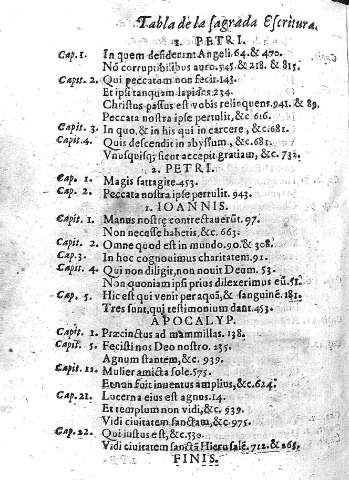 Tabla de la sagrada Escritura.
1. PETRI.
Cap. 1. In quem desiderant Angeli. 64. & 470.
Nō corruptibilibus auro. 545. & 218. & 815.
Capit. 2. Qui peccatum non fecit. 143.
Et ipsi tanquam lapides 234.
Christus passus est vobis relinquens. 941. & 89.
Peccata nostra ipse pertulit, &c 616.
Capit. 3. In quo, & in his qui in carcere, &c. 681.
Capit. 4. Quis descendit in abyssum, &c. 681.
Vnusquisq; sicut accepit gratiam, &c. 732.
2. PETRI.
Cap. 1. Magis satagite. 453.
Cap. 2. Peccata nostra ipse pertulit. 943.
1. IOANNIS.
Capit. 1. Manus nostre contrectauerūt. 97.
Non necesse habetis, &c. 663.
Capit. 2. Omne quod est in mundo. 90. & 308.
Cap. 3. In hoc cognouimus charitatem. 91.
Capit. 4. Qui non diligit, non nouit Deum. 53.
Non quoniam ipsi prius dilexerimus eū. 51.
Cap. 5. Hic est qui venit per aquā, & sanguinē. 181.
Tres sunt, qui testimonium dant. 453.
APOCALYP.
Capit. 1. Præcinctus ad mammillas. 138.
Capit. 5. Fecisti nos Deo nostro. 235.
Agnum stantem, &c. 939.
Capit. 11. Mulier amicta sole. 575.
Et non fuit inuentus amplius, &c. 624.
Cap. 21. Lucerna eius est agnus. 14.
Et templum non vidi, &c. 939.
Vidi ciuitatem sanctam, &c. 975.
Cap. 22. Qui iustus est, &c. 530.
Vidi ciuitatem sanctā Hierusalē. 712. & 265.
FINIS.